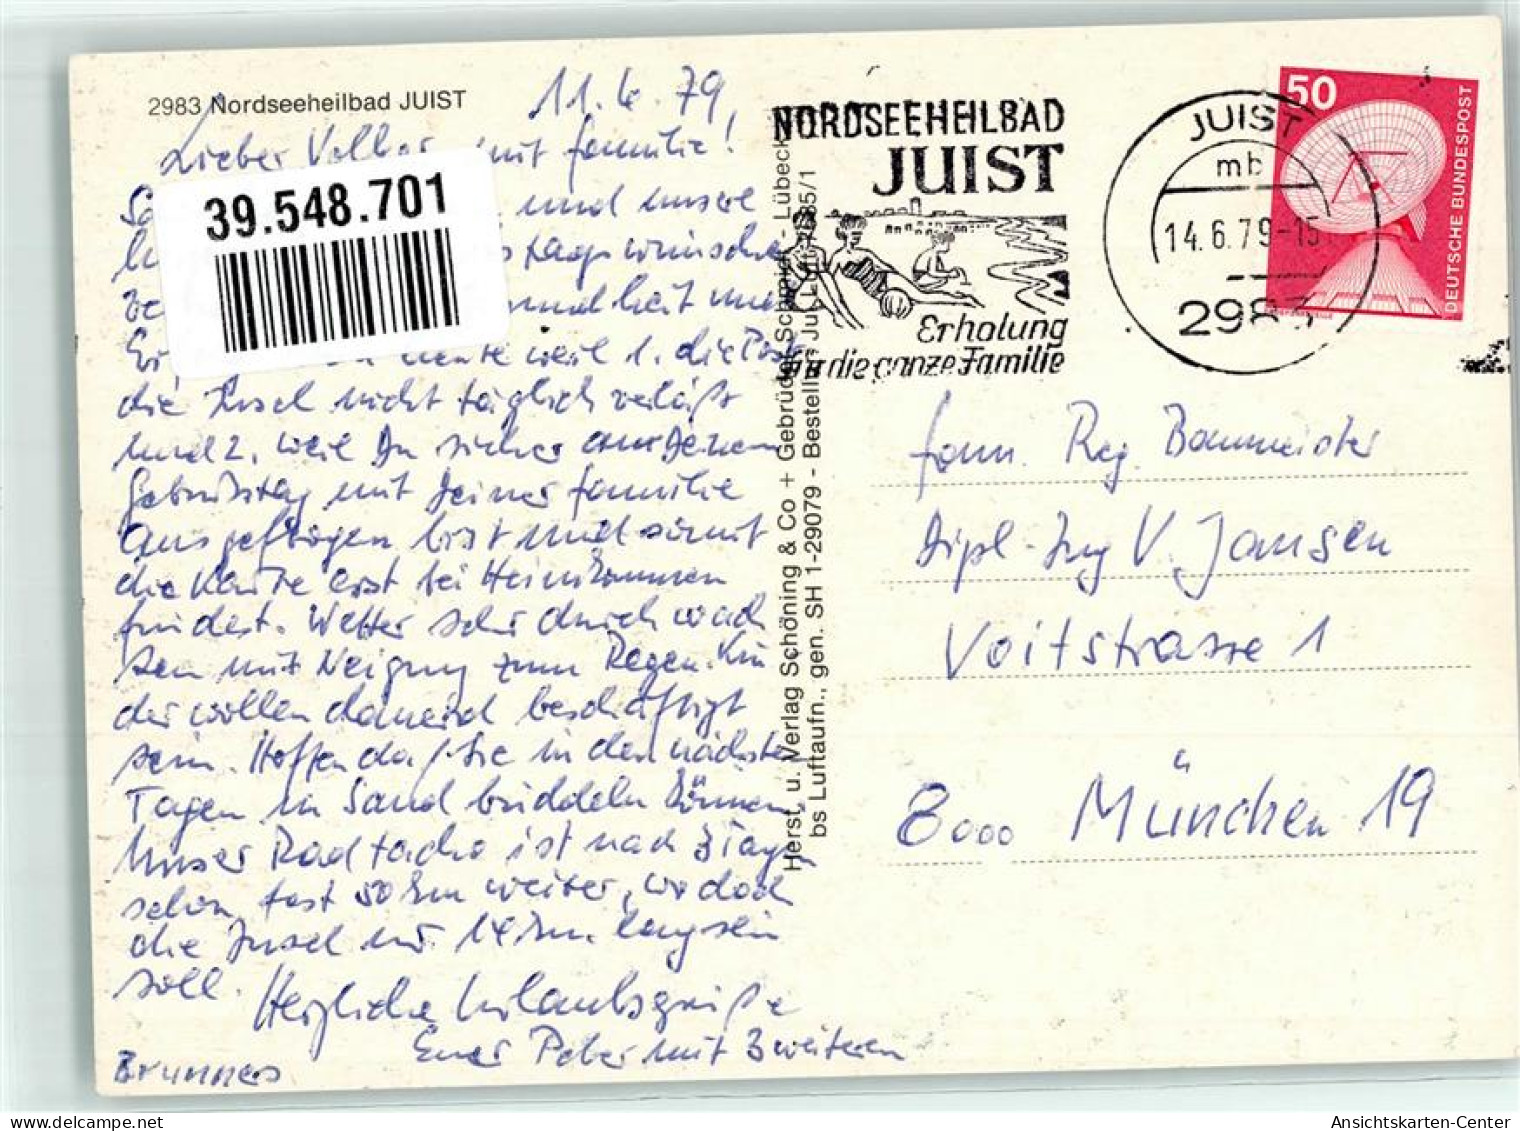 2983 Nordseeheilbad JUIST
11.6.79
Lieber Volker mit Familie!
39.548.701
und unsere
tagswünsche
heute weil 1. die Post
die Insel nicht täglich verläßt
und 2. weil Du sicher an Deinem
Geburtstag mit Deiner Familie
ausgeflogen bist und somit
die Karte erst bei Heimkommen
findest. Wetter sehr durchwach
sen mit Neigung zum Regen. Kin
der wollen dauernd beschäftigt
sein. Hoffen daß sie in den nächsten
Tagen im Sand buddeln können.
Unser Radtacho ist nach 3 Tagen
schon fast 50 km weiter, wo doch
die Insel nur 14 km lang sein
soll.
Herzliche Urlaubsgrüße
Euer Peter mit 3 weiteren
Brunners
Herst. u. Verlag Schöning & Co + Gebrüder Schmidt - Lübeck
bs Luftaufn., gen. SH 1-29079 - Bestellnr.
NORDSEEHEILBAD
JUIST
Erholung
für die ganze Familie
JUIST
mb
14.6.79-15
2983
50
DEUTSCHE BUNDESPOST
Fam. Reg. Baumeister
Dipl.-Ing V. Jansen
Voitstrasse 1
8000 München 19
Ansichtskarten-Center